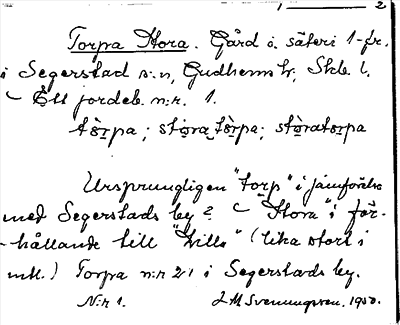 1 2
Torpa Stora. Gård o. säteri 1-fr.
i Segerstad s:n, Gudhems hr, Skbl. l.
Ett jordeb. n:r. 1.
tòrpa; stora tòrpa; stòratorpa
Ursprungligen "torp" i jämförelse
med Segerstads by? "Stora" i för-
hållande till "Lilla" (lika stort i
mtl.) Torpa n:r 21 i Segerstads by.
N:r 1. J M Svenungsson. 1950.